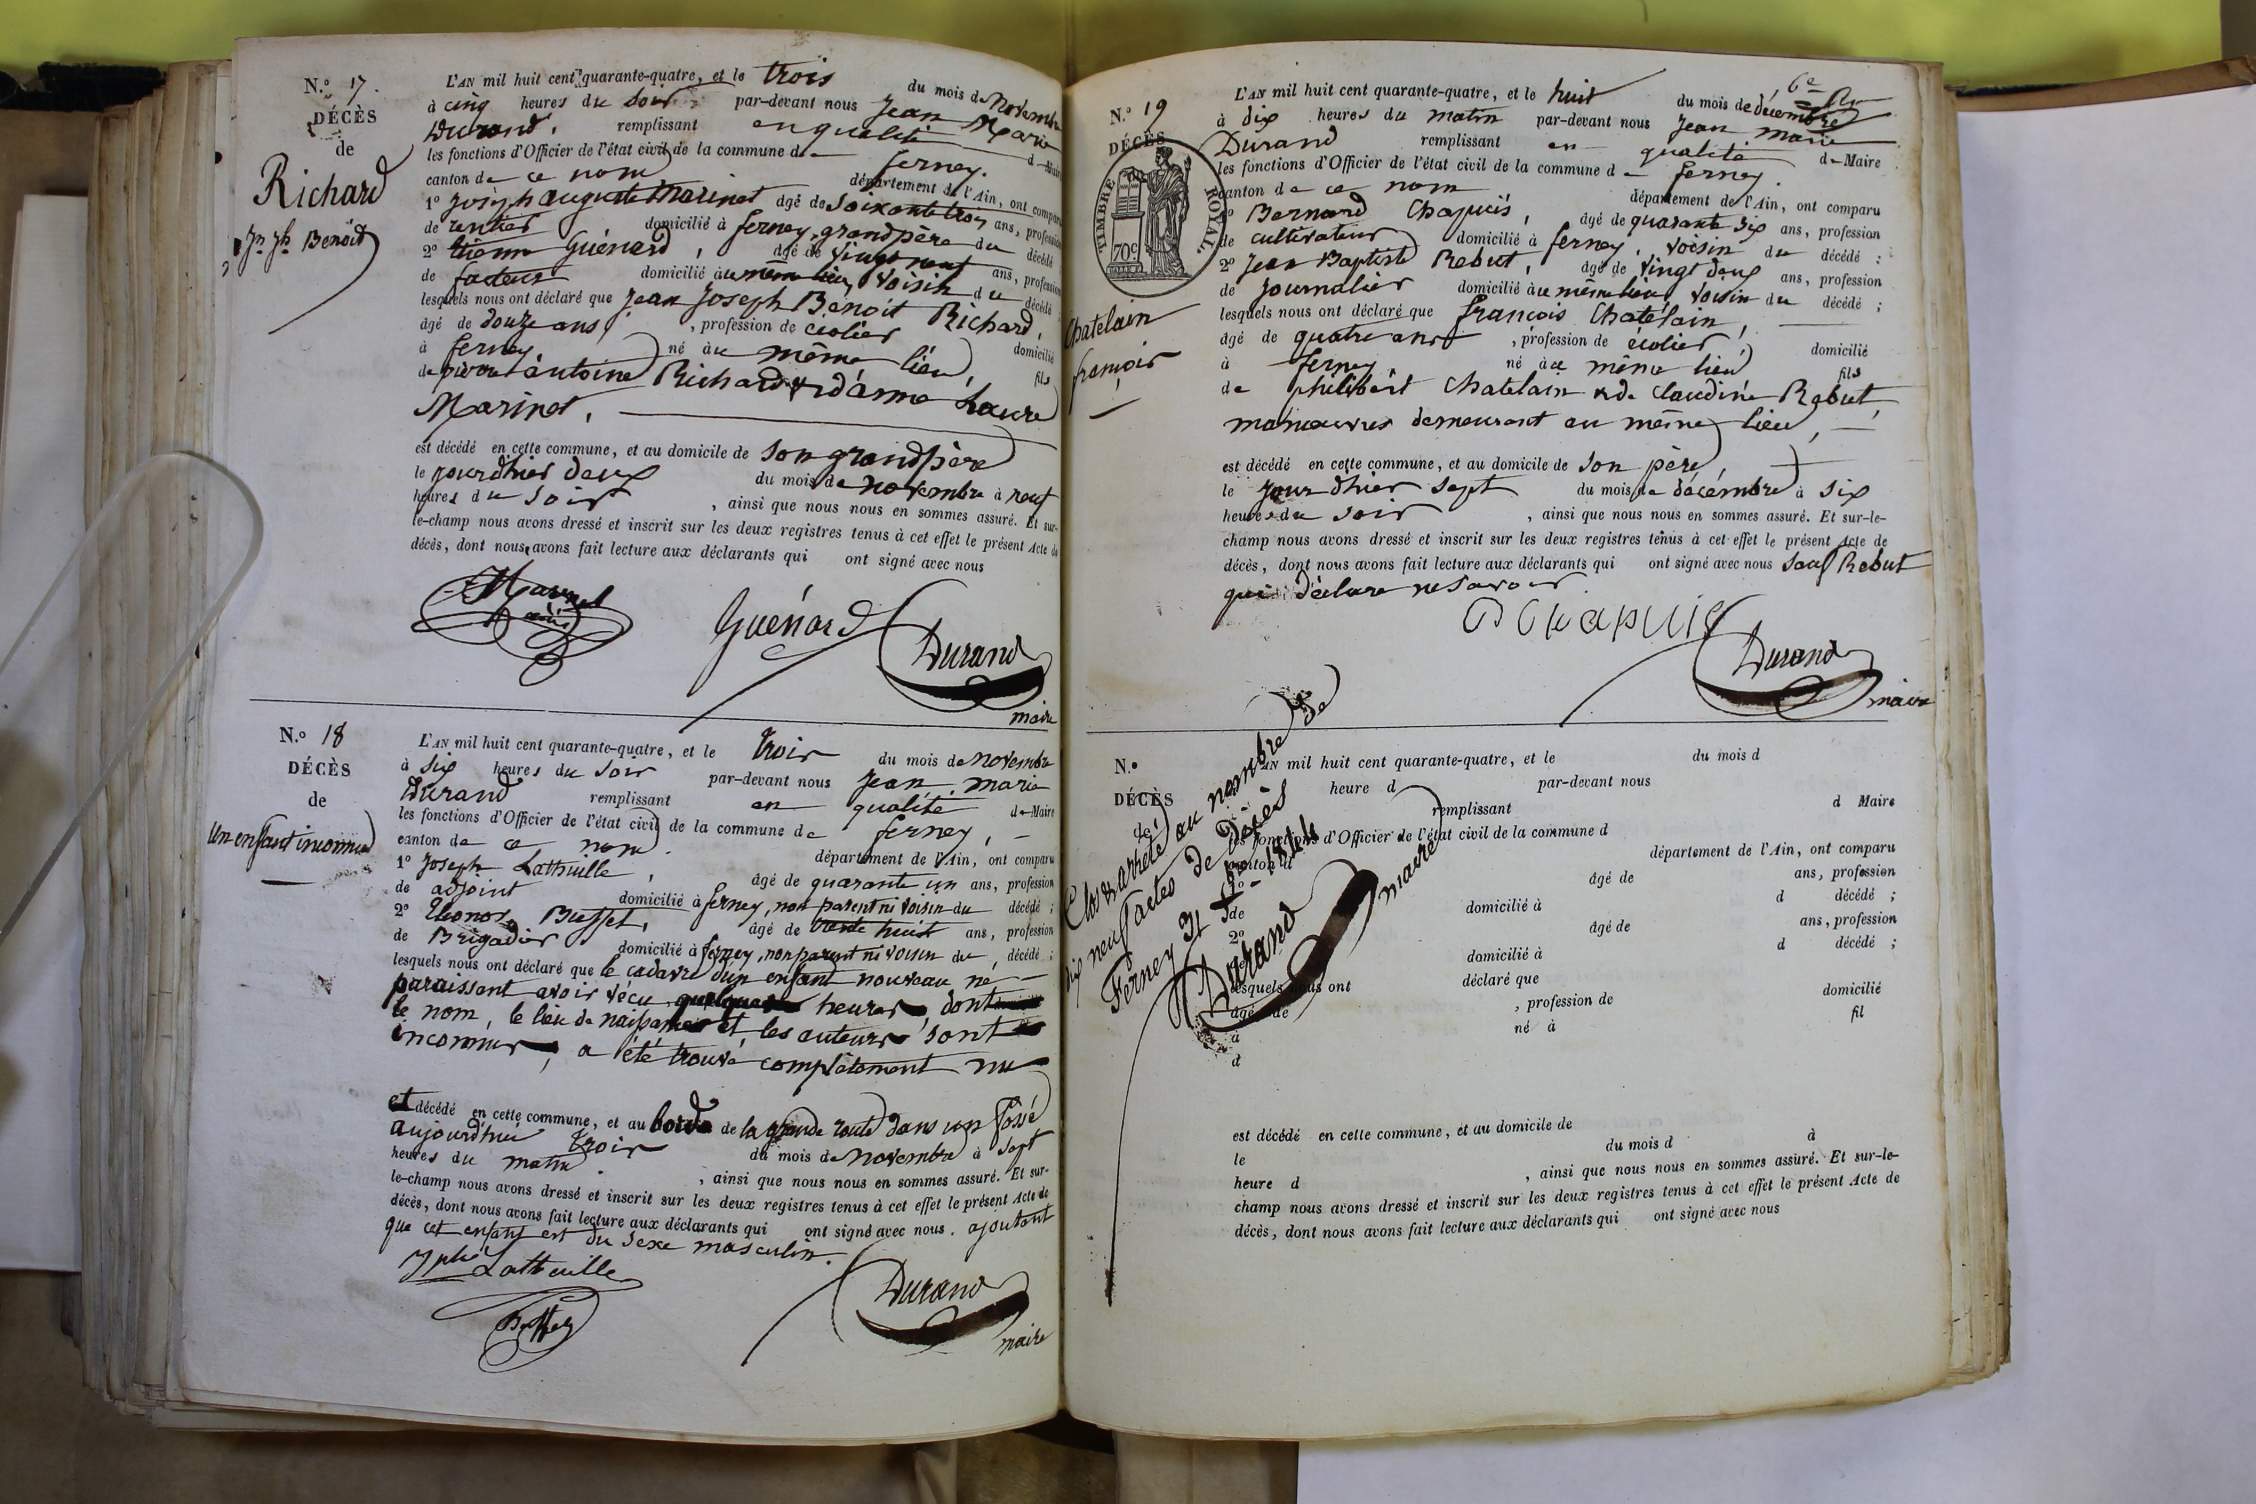 N.° 17.
DÉCÈS
de
Richard
Jn Jh Benoit
L'AN mil huit cent quarante-quatre, et le trois du mois de Novembre
à cinq heures du soir par-devant nous Jean Marie
Durand, remplissant en qualité de Maire
les fonctions d'Officier de l'état civil de la commune de ferney.
canton de ce nom département de l'Ain, ont comparu
1° Joseph auguste Marinet âgé de soixante trois ans, profession
de rentier domicilié à ferney, grand père du décédé
2° Etienne Guénard, âgé de vingt neuf ans, profession
de facteur domicilié au même lieu, voisin du décédé
lesquels nous ont déclaré que Jean Joseph Benoit Richard,
âgé de douze ans, profession de écolier domicilié
à ferney né au même lieu, fils
de pierre antoine Richard & d'anne Laure
Marinet,
est décédé en cette commune, et au domicile de son grand père
le jourdhier deux du mois de novembre à neuf
heures du soir, ainsi que nous nous en sommes assuré. Et sur-
le-champ nous avons dressé et inscrit sur les deux registres tenus à cet effet le présent Acte de
décès, dont nous avons fait lecture aux déclarants qui ont signé avec nous
Marinet
Guénard
Durand
maire
N.° 18
DÉCÈS
de
un enfant inconnu
L'AN mil huit cent quarante-quatre, et le trois du mois de novembre
à six heures du soir par-devant nous Jean marie
Durand remplissant en qualité de Maire
les fonctions d'Officier de l'état civil de la commune de ferney,
canton de ce nom. département de l'Ain, ont comparu
1° Joseph Lathuille, âgé de quarante un ans, profession
de adjoint domicilié à ferney, non parent ni voisin du décédé ;
2° Eléonor Buffet, âgé de trente huit ans, profession
de Brigadier domicilié à ferney, non parent ni voisin du décédé ;
lesquels nous ont déclaré que le cadavre d'un enfant nouveau né
paraissant avoir vécu quelques heures, dont
le nom, le lieu de naissance et les auteurs sont
inconnus, a été trouvé complètement nu
et décédé en cette commune, et au bord de la grande route dans un fossé
aujourd'hui trois du mois de novembre à sept
heures du matin, ainsi que nous nous en sommes assuré. Et sur-
le-champ nous avons dressé et inscrit sur les deux registres tenus à cet effet le présent Acte de
décès, dont nous avons fait lecture aux déclarants qui ont signé avec nous. ajoutant
que cet enfant est du sexe masculin.
Jph Lathuille
Durand
maire
Buffet
6e
N.° 19
DÉCÈS
TIMBRE ROYAL.
70c
Chatelain
françois
L'AN mil huit cent quarante-quatre, et le huit du mois de décembre
à dix heures du matin par-devant nous Jean marie
Durand remplissant en qualité de Maire
les fonctions d'Officier de l'état civil de la commune de ferney.
canton de ce nom département de l'Ain, ont comparu
1° Bernard Chapuis, âgé de quarante six ans, profession
de cultivateur domicilié à ferney, voisin du décédé ;
2° Jean Baptiste Rebut, âgé de vingt deux ans, profession
de journalier domicilié au même lieu, voisin du décédé ;
lesquels nous ont déclaré que françois Chatelain,
âgé de quatre ans, profession de écolier, domicilié
à ferney né au même lieu fils
de philibert Chatelain & de Claudine Rebut
manoeuvres demeurant au même lieu,
est décédé en cette commune, et au domicile de son père,
le jour dhier sept du mois de décémbre à six
heures du soir, ainsi que nous nous en sommes assuré. Et sur-le-
champ nous avons dressé et inscrit sur les deux registres tenus à cet effet le présent Acte de
décès, dont nous avons fait lecture aux déclarants qui ont signé avec nous sauf Rebut
qui déclare ne savoir
B Chapuis
Durand
maire
N.°
DÉCÈS
de
L'AN mil huit cent quarante-quatre, et le du mois d
heure d par-devant nous
remplissant d Maire
les fonctions d'Officier de l'état civil de la commune d
canton d département de l'Ain, ont comparu
1° âgé de ans, profession
de domicilié à d décédé ;
2° âgé de ans, profession
de domicilié à d décédé ;
lesquels nous ont déclaré que
âgé de , profession de domicilié
à né à fil
d
est décédé en cette commune, et au domicile de
le du mois d à
heure d , ainsi que nous nous en sommes assuré. Et sur-le-
champ nous avons dressé et inscrit sur les deux registres tenus à cet effet le présent Acte de
décès, dont nous avons fait lecture aux déclarants qui ont signé avec nous
Clos & arrêté au nombre de
dix neuf actes de décès
Ferney 31 1844
Durand
maire